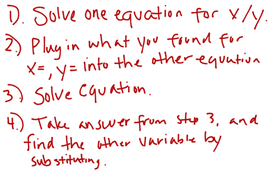 1). Solve one equation for x/y.
2.) Plug in what you found for
x=, y= into the other equation
3.) Solve Equation.
4.) Take answer from step 3, and
find the other variable by
substituting.